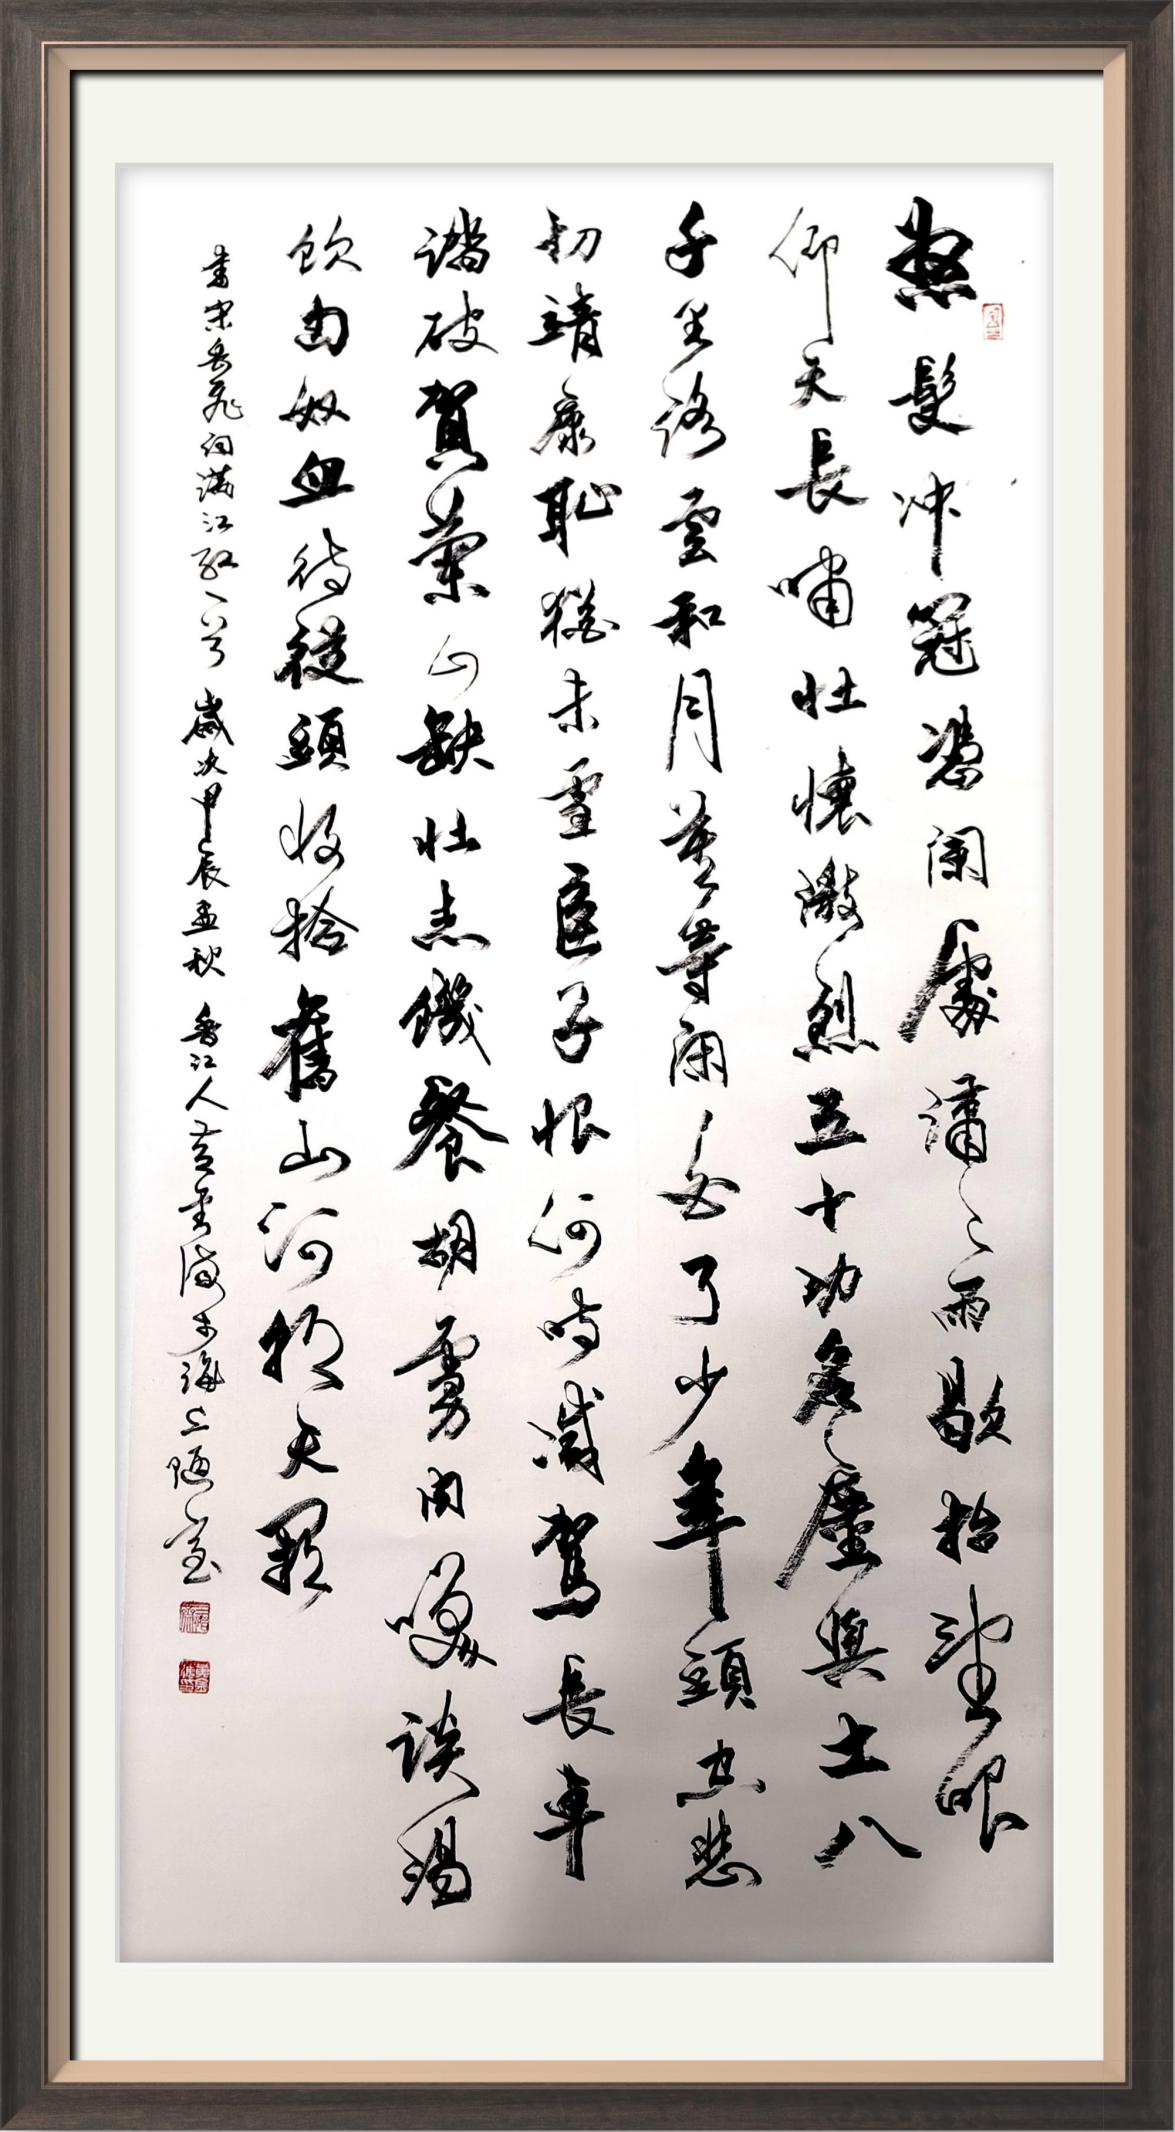 怒髮冲冠憑闌處瀟〻雨歇抬望眼
仰天長嘯壯懷激烈三十功名塵與土八
千里路雲和月莫等閑白了少年頭空悲
切靖康恥猶未雪臣子恨何時滅駕長車
踏破賀蘭山缺壯志饑餐胡虜肉笑談渴
飲匈奴血待從頭收拾舊山河朝天闕
書宋岳飛詞滿江紅一首 歲次甲辰孟秋 香江人黃 於海上陋室